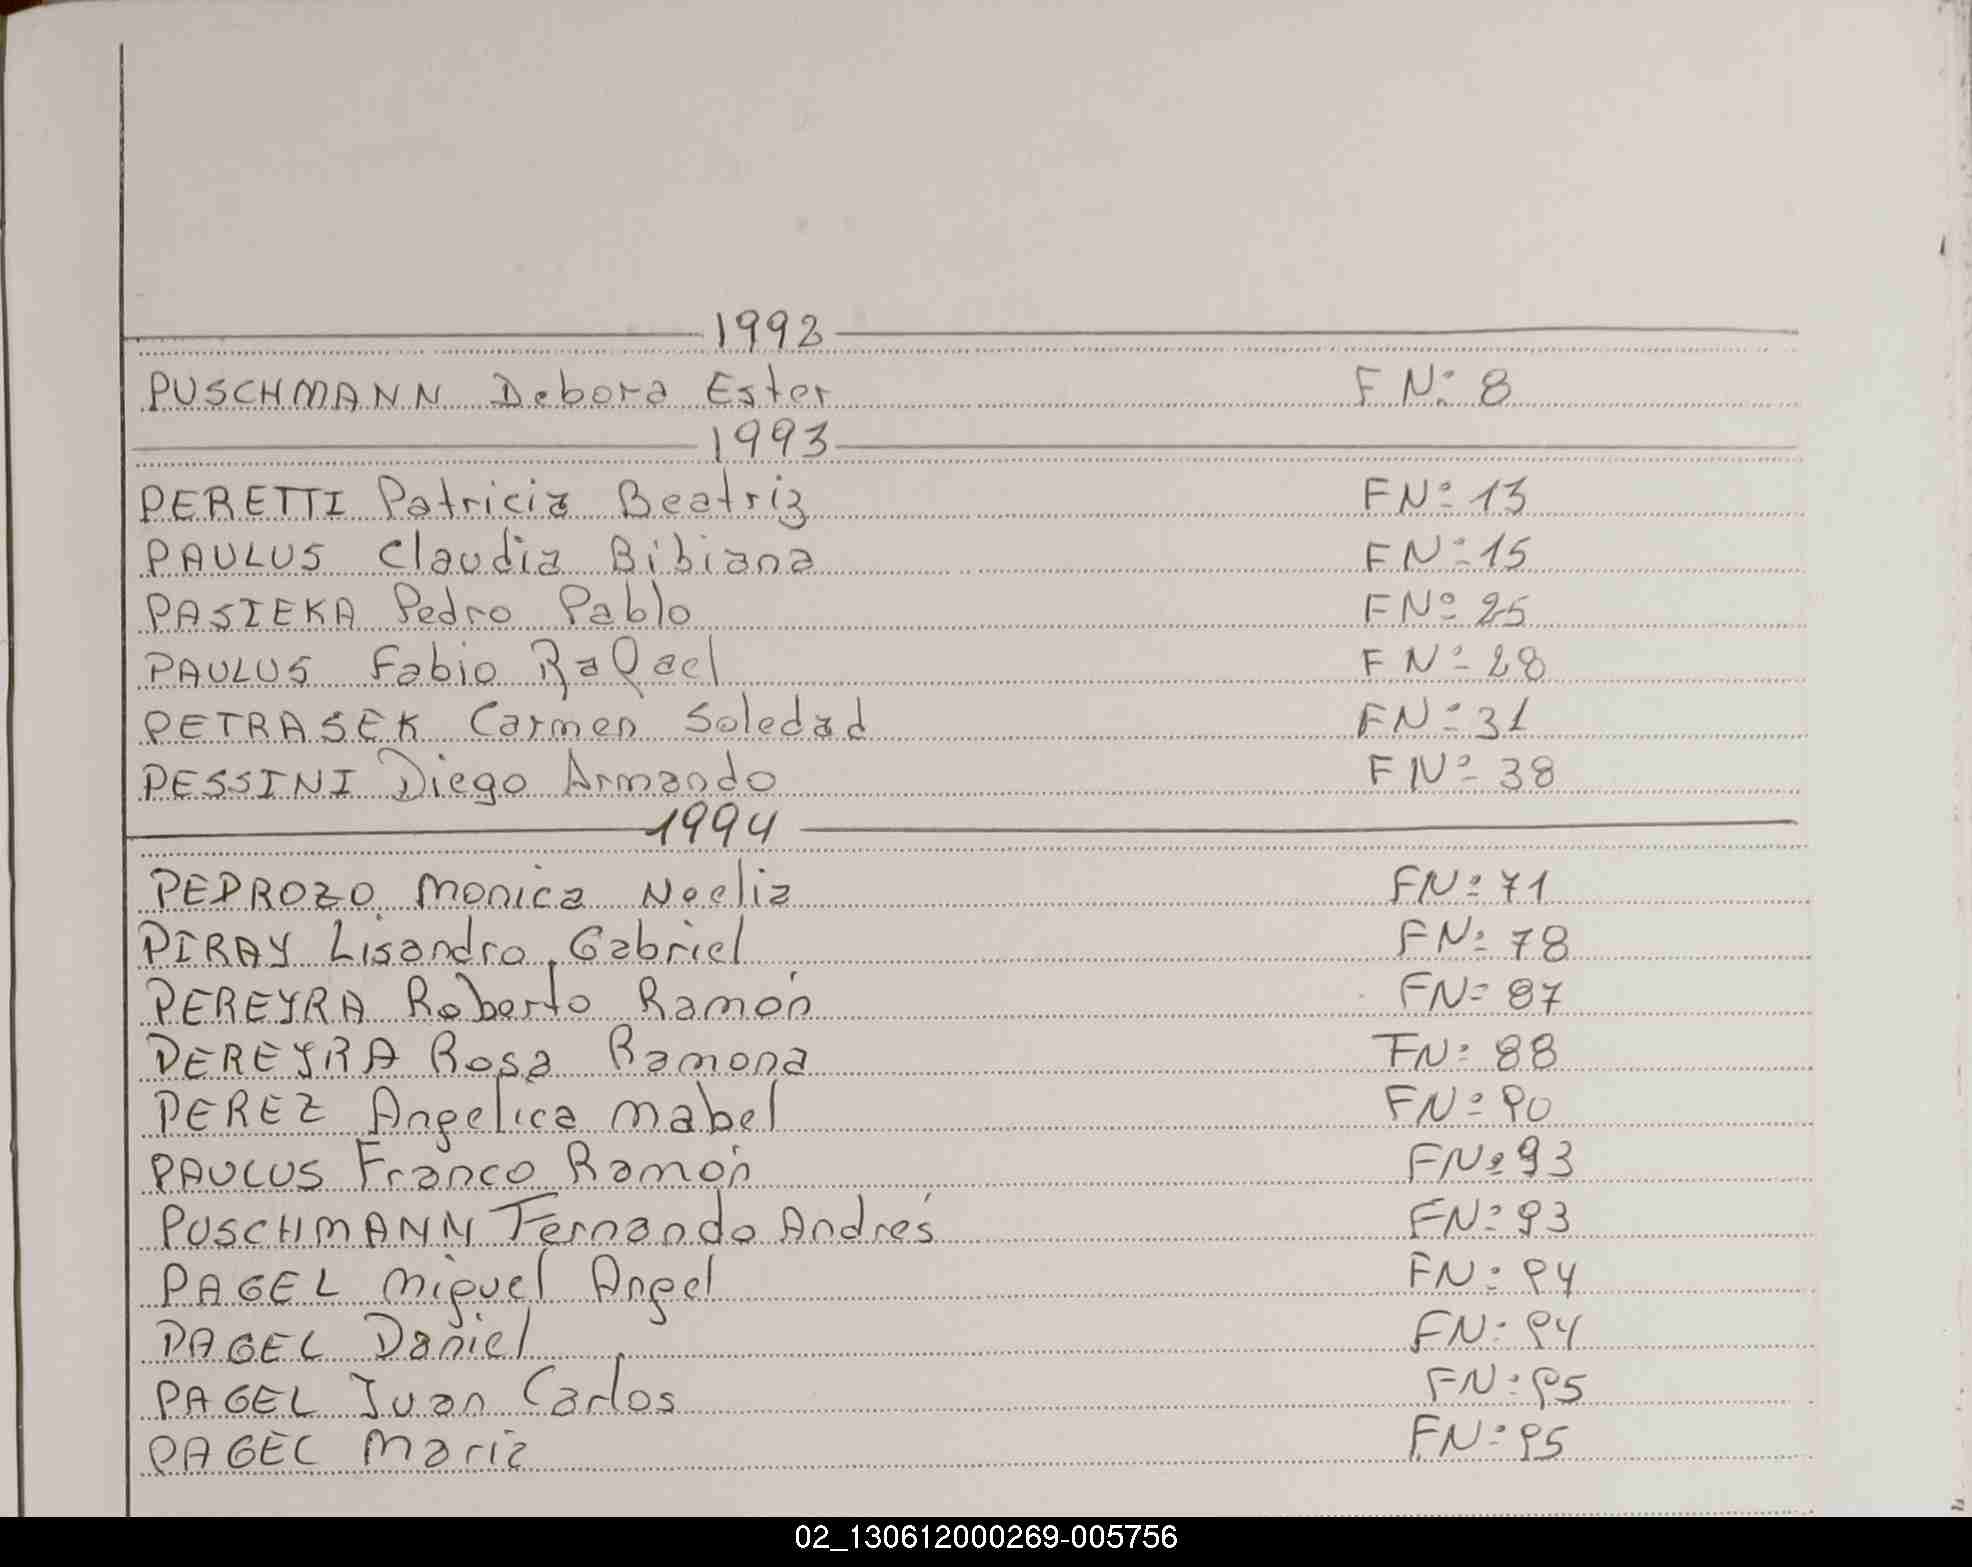 1992
PUSCHMANN Debora Ester FNº 8
1993
PERETTI Patricia Beatriz FNº 13
PAULUS Claudia Bibiana FNº 15
PASIEKA Pedro Pablo FNº 25
PAULUS Fabio Rafael FNº 28
PETRASEK Carmen Soledad FNº 31
PESSINI Diego Armando FNº 38
1994
PEDROZO Monica Noelia FNº 71
PIRAY Lisandro Gabriel FNº 78
PEREYRA Roberto Ramón FNº 87
PEREYRA Rosa Ramona FNº 88
PEREZ Angelica Mabel FNº 90
PAULUS Franco Ramón FNº 93
PUSCHMANN Fernando Andrés FNº 93
PAGEL Miguel Angel FNº 94
PAGEL Daniel FNº 94
PAGEL Juan Carlos FNº 95
PAGEL Maria FNº 95
02_130612000269-005756